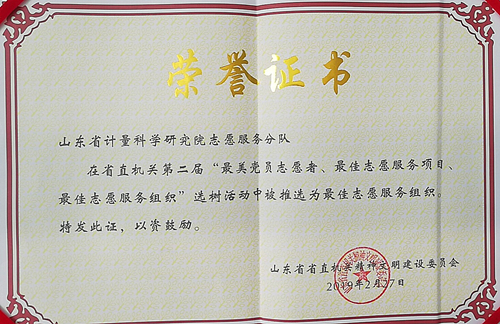 荣誉证书
山东省计量科学研究院志愿服务分队
在省直机关第二届“最美党员志愿者、最佳志愿服务项目、
最佳志愿服务组织”选树活动中被推选为最佳志愿服务组织。
特发此证，以资鼓励。
山东省省直机关精神文明建设委员会
2019年2月27日